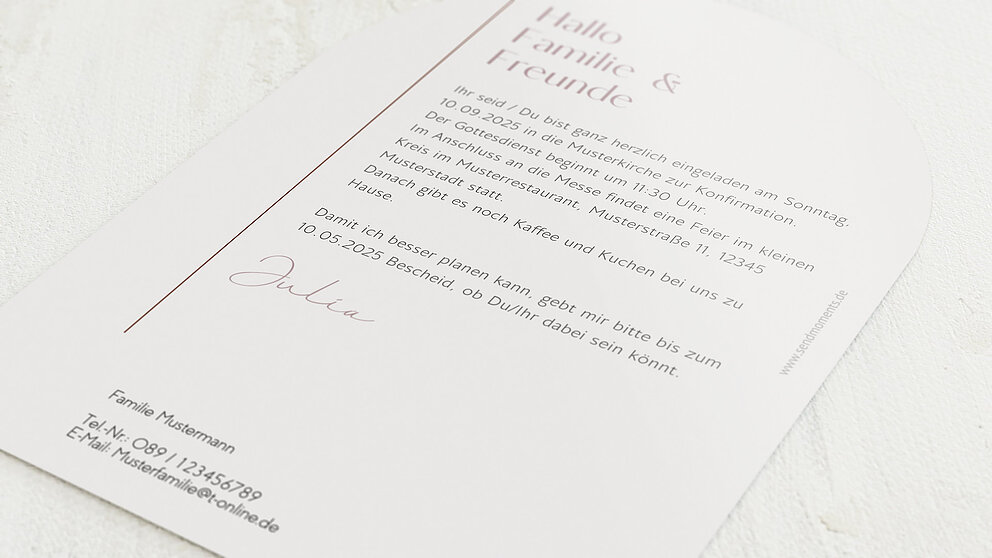 Hallo
Familie &
Freunde
Ihr seid / Du bist ganz herzlich eingeladen am Sonntag,
10.09.2025 in die Musterkirche zur Konfirmation.
Der Gottesdienst beginnt um 11:30 Uhr.
Im Anschluss an die Messe findet eine Feier im kleinen
Kreis im Musterrestaurant, Musterstraße 11, 12345
Musterstadt statt.
Danach gibt es noch Kaffee und Kuchen bei uns zu
Hause.
Damit ich besser planen kann, gebt mir bitte bis zum
10.05.2025 Bescheid, ob Du/Ihr dabei sein könnt.
Julia
www.sendmoments.de
Familie Mustermann
Tel.-Nr.: 089 / 123456789
E-Mail: Musterfamilie@t-online.de